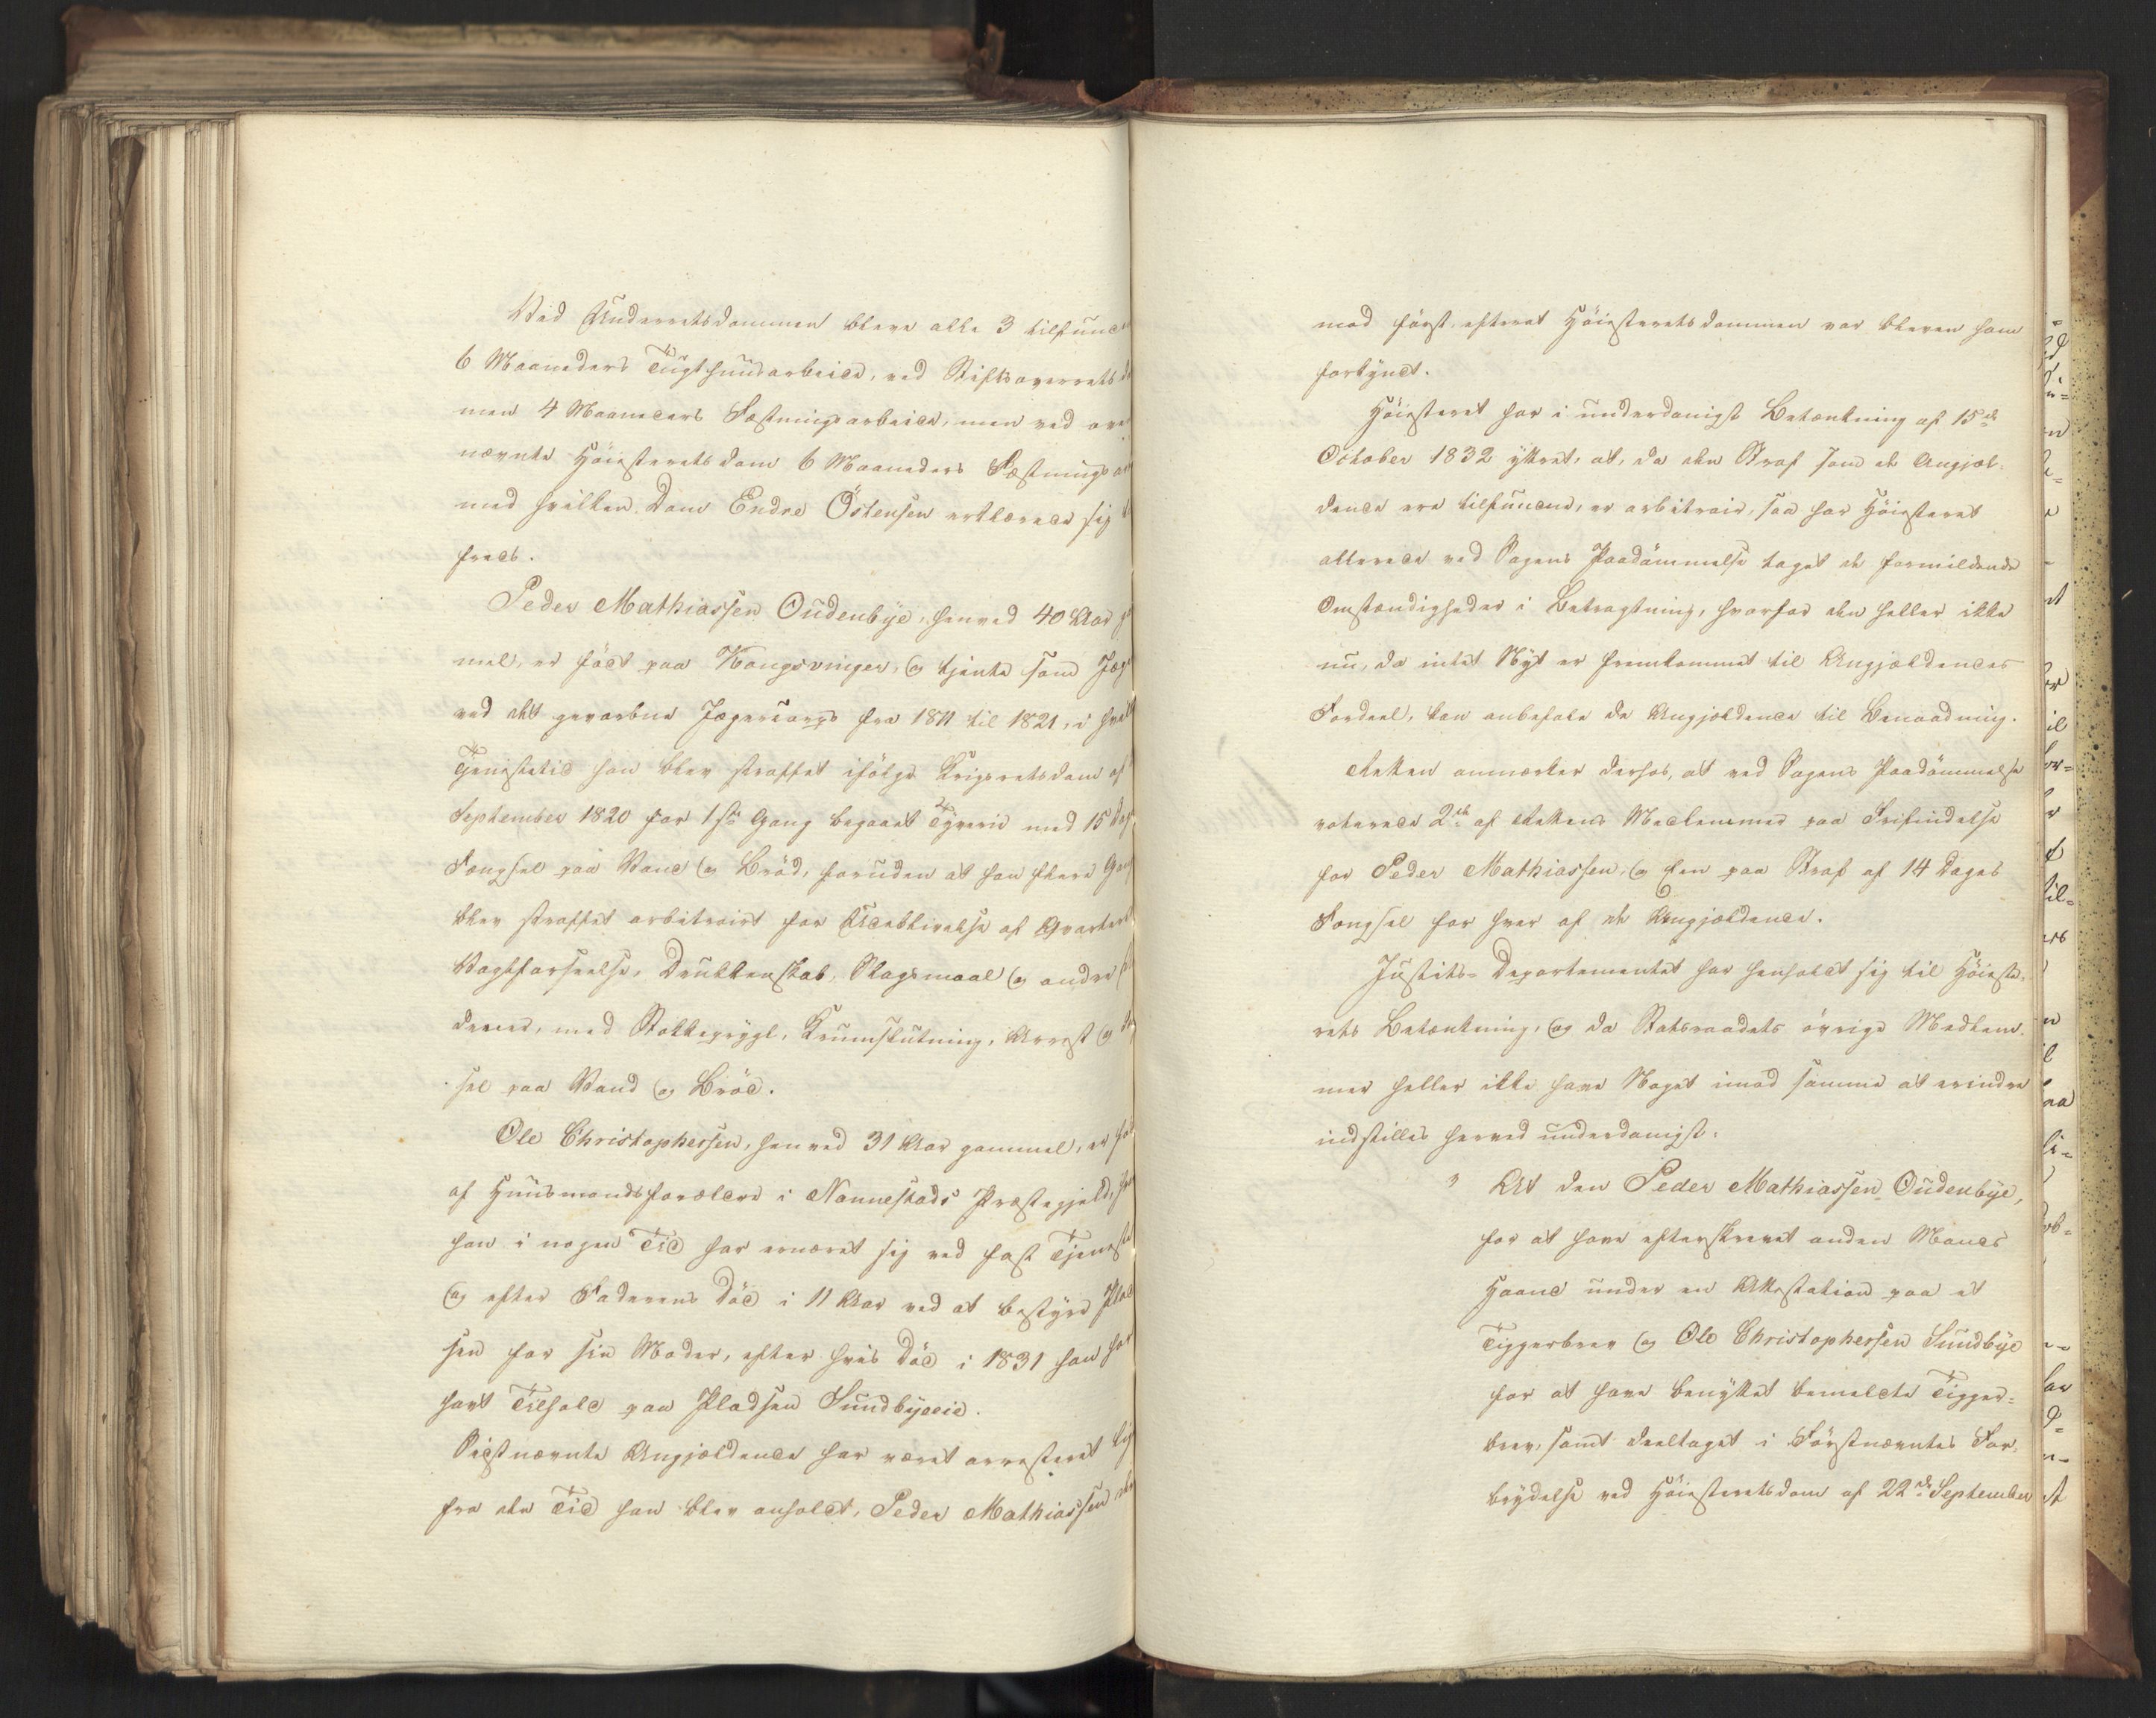 Ved Underretsdommen bleve alle 3 tilfund
6 Maaneders Tugthuusarbeide, ved Stiftsoverrets
men 4 Maaneders Fæstningsarbeide, men ved ove
nævnte Höiesteretsdom 6 Maaneders Fæstnings
med hvilken Dom Endre Östensen erklærede sig
freds.
Peder Mathiassen Oudenbye, henved 40 Aar
mel, er födt paa Kongsvinger, og tjente som Jæg
ved det gevorbne Jægercorps fra 1811 til 1821, i
Tjenestetid han blev straffet ifölge Krigsretsdom af
September 1820 for 1ste Gang begaaet Tyverie med 15
Fængsel paa Vand og Bröd, foruden at han flere
blev straffet arbitrairt for Udeblivelse af Qvarter
Vagtforseelse, Drukkenskab, Slagsmaal og andre
med Stokkeprygl, Krumslutning, Arrest og
sel paa Vand og Bröd.
Ole Christophersen, henved 31 Aar gammel, er
af Huusmandsforældre i Nannestads Præstegjeld,
han i nogen Tid har ernæret sig ved fast Tjeneste
og efter Faderens Död i 11 Aar ved at bestyre Plad
sen for sin Moder, efter hvis Död i 1831 han har
havt Tilhold paa Pladsen Sundbyeeie.
Sidstnævnte Angjældende har været arresteret
fra den Tid han blev anholdt, Peder Mathiassen
mod först efterat Höiesteretsdommen var bleven ham
forkyndt.
Höiesteret har i underdanigst Betænkning af 15de
October 1832 yttret, at, da den Straf som de Angjæl-
dende ere tilfundne, er arbitrair, saa har Höiesteret
allerede ved Sagens Paadömmelse taget de formildende
Omstændigheder i Betragtning, hvorfor den heller ikke
nu, da intet Nyt er fremkommet til Angjældendes
Fordeel, kan anbefale de Angjældende til Benaadning.
Retten anmærker derhos, at ved Sagens Paadömmelse
voterede 2de af Rettens Medlemmer paa Frifindelse
for Peder Mathiassen, og een paa Straf af 14 Dages
Fængsel for hver af de Angjældende.
Justits-Departementet har henholdt sig til Höieste-
rets Betænkning, og da Statsraadets övrige Medlem-
mer heller ikke have Noget imod samme at erindre
indstilles herved underdanigst:
" At den Peder Mathiassen Oudenbye,
for at have efterskrevet anden Mands
Haand under en Attestation paa et
Tiggerbrev og Ole Christophersen Sundbye
for at have benyttet bemeldte Tigger-
brev, samt deeltaget i Förstnævntes For-
brydelse ved Höiesteretsdom af 22de September